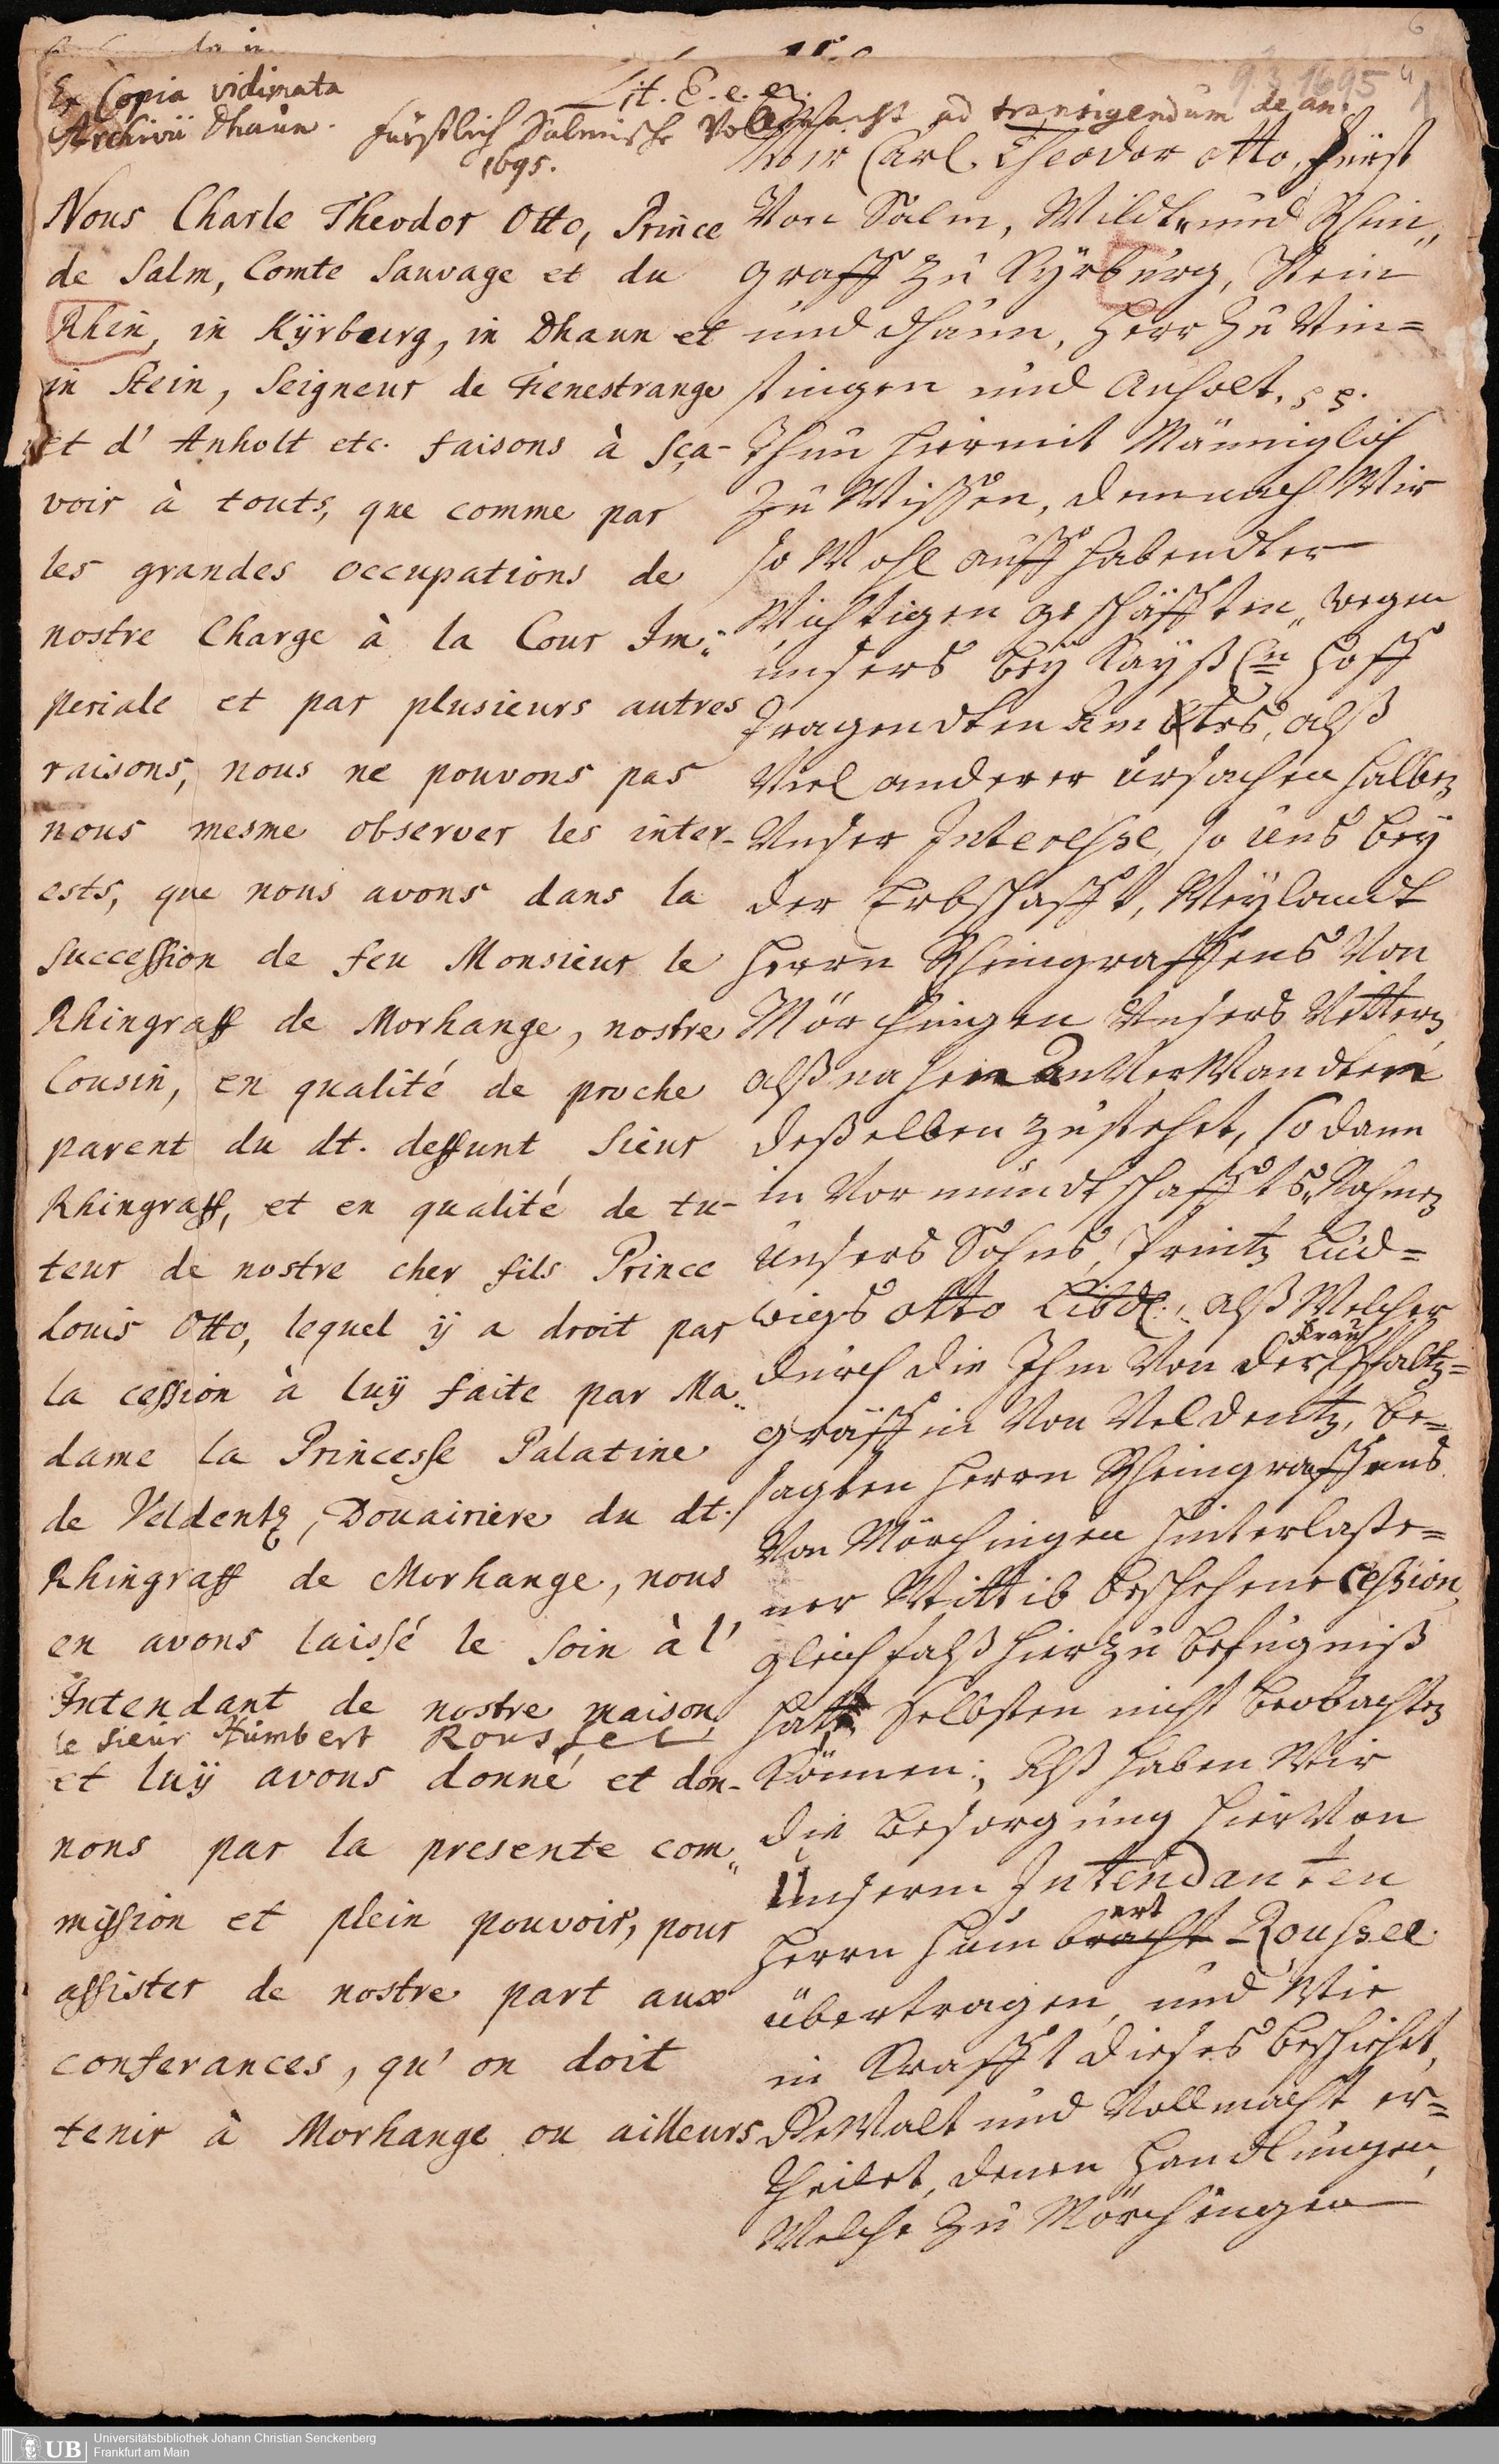 6
9. 3. 1695
4
1
Ex Copia vidimata
Archivii Dhaun.
Lit. E. e. e.
Fürstlich Salmische Vollmacht ad transigendum de an.
1695.
Nous Charle Theodor Otto, Prince
de Salm, Comte Sauvage et du
Rhin, in Kÿrbourg, in Dhaun et
in Stein, Seigneur de Fienestrange
et d' Anholt etc. faisons à sça-
voir à touts, que comme par
les grandes occupations de
nostre Charge à la Cour Im„
periale et par plusieurs autres
raisons, nous ne pouvons pas
nous mesme observer les inter-
ests, que nous avons dans la
succession de feu Monsieur le
Rhingraff de Morhange, nostre
Cousin, en qualité de proche
parent du dt. deffunt Sieur
Rhingraff, et en qualité de tu-
teur de nostre cher fils Prince
Louis Otto, lequel ÿ a droit par
la cession à luÿ faite par Ma„
dame la Princesse Palatine
de Veldentz, Douairiere du dt.
Rhingraff de Morhange, nous
en avons laissé le soin à l'
Intendant de nostre maison
le Sieur Humbert Roussel
et luÿ avons donné et don-
nons par la presente com„
mission et plein pouvoir, pour
assister de nostre part aux
conferances, qu' on doit
tenir à Morhange ou ailleurs
Wir Carl Theodor Otto, Fürst
Von Salm, Wildt„ und Rhein„
graff zu Kÿrburg, Stein
und Dhaun, Herr zu Vin=
stingen und Anholt,
Thun hiermit Männiglich
zu Wissen, demnach Wir
so Wohl auff habendter
Wichtigen geschäfften„ wegen
unsers beÿ Kaÿßln Hoff
tragendten Ambtes, alß
Viel anderer ursachen halben
Unser Interesse, so uns beÿ
der Erbschafft, Weÿlandt
Herrn Rheingraffens Von
Mörchingen Unsers Vettern,
alß nahen anVerWandten
deßelben zustehet, so dann
in Vormundtschaffts„ Nahmen
unsers Sohns, Printz Lud=
wigs Otto Libd., alß Welcher
durch die Ihm Von der Frau Pfaltz=
gräffin Von Veldentz, be=
sagten Herrn Rheingraffens
Von Mörchingen hinterlaße=
ner Wittib beschehene Cession,
gleichfalß hierzu befugniß
hatt, selbsten nicht beobachten
können; Alß haben Wir
die besorgung hierVon
Unserm Intendanten
Herrn Humbracht ert Roussel
übertragen, und Wie
in Krafft dieses beschiehet,
GeWalt und Vollmacht er=
theilet, denen Handlungen,
Welche zu Mörchingen
UB
Universitätsbibliothek Johann Christian Senckenberg
Frankfurt am Main